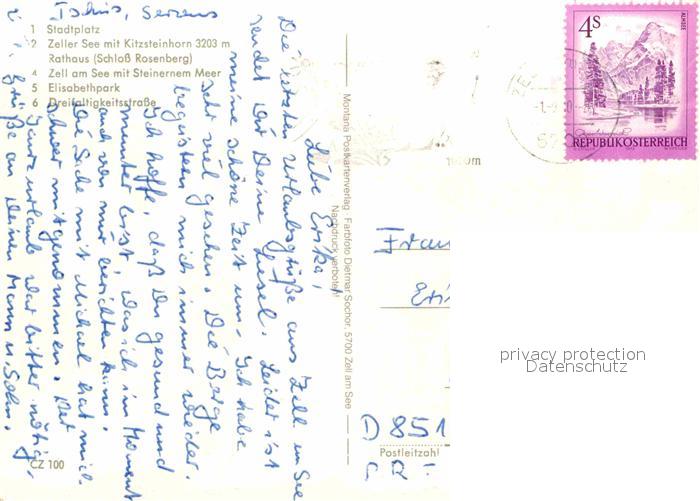 Tschüs, Servus
1 Stadtplatz
2 Zeller See mit Kitzsteinhorn 3203 m
Rathaus (Schloß Rosenberg)
4 Zell am See mit Steinernem Meer
5 Elisabethpark
6 Dreifaltigkeitsstraße
CZ 100
Liebe Erika!
Die letzten Urlaubsgrüße aus Zell am See
sendet Dir Deine Liesel. Leider ist
meine schöne Zeit um. Ich habe
sehr viel gesehen. Die Berge
begeistern mich immer wieder.
Ich hoffe, daß Du gesund und
munter bist, was ich im Moment
auch von mir berichten kann.
Die Sache mit Michael hat mich
schwer mitgenommen. Der
Kurzurlaub war bitter nötig.
Grüße an Deinen Mann u. Sohn.
Montana Postkartenverlag · Farbfoto Dietmar Sochor, 5700 Zell am See
Nachdruck verboten!
4S
ALMSEE
REPUBLIK ÖSTERREICH
Frau
Eri
D 851
Postleitzahl
privacy protection
Datenschutz